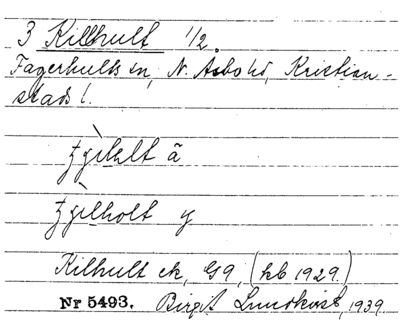 3 Killhult 1/2.
Fagerhults sn, N. Åsbo hd, Kristian-
stads l.
å
y
Kilhult ek, G9, (kb 1929.)
Nr 5493. Birgit Lundkvist, 1939.